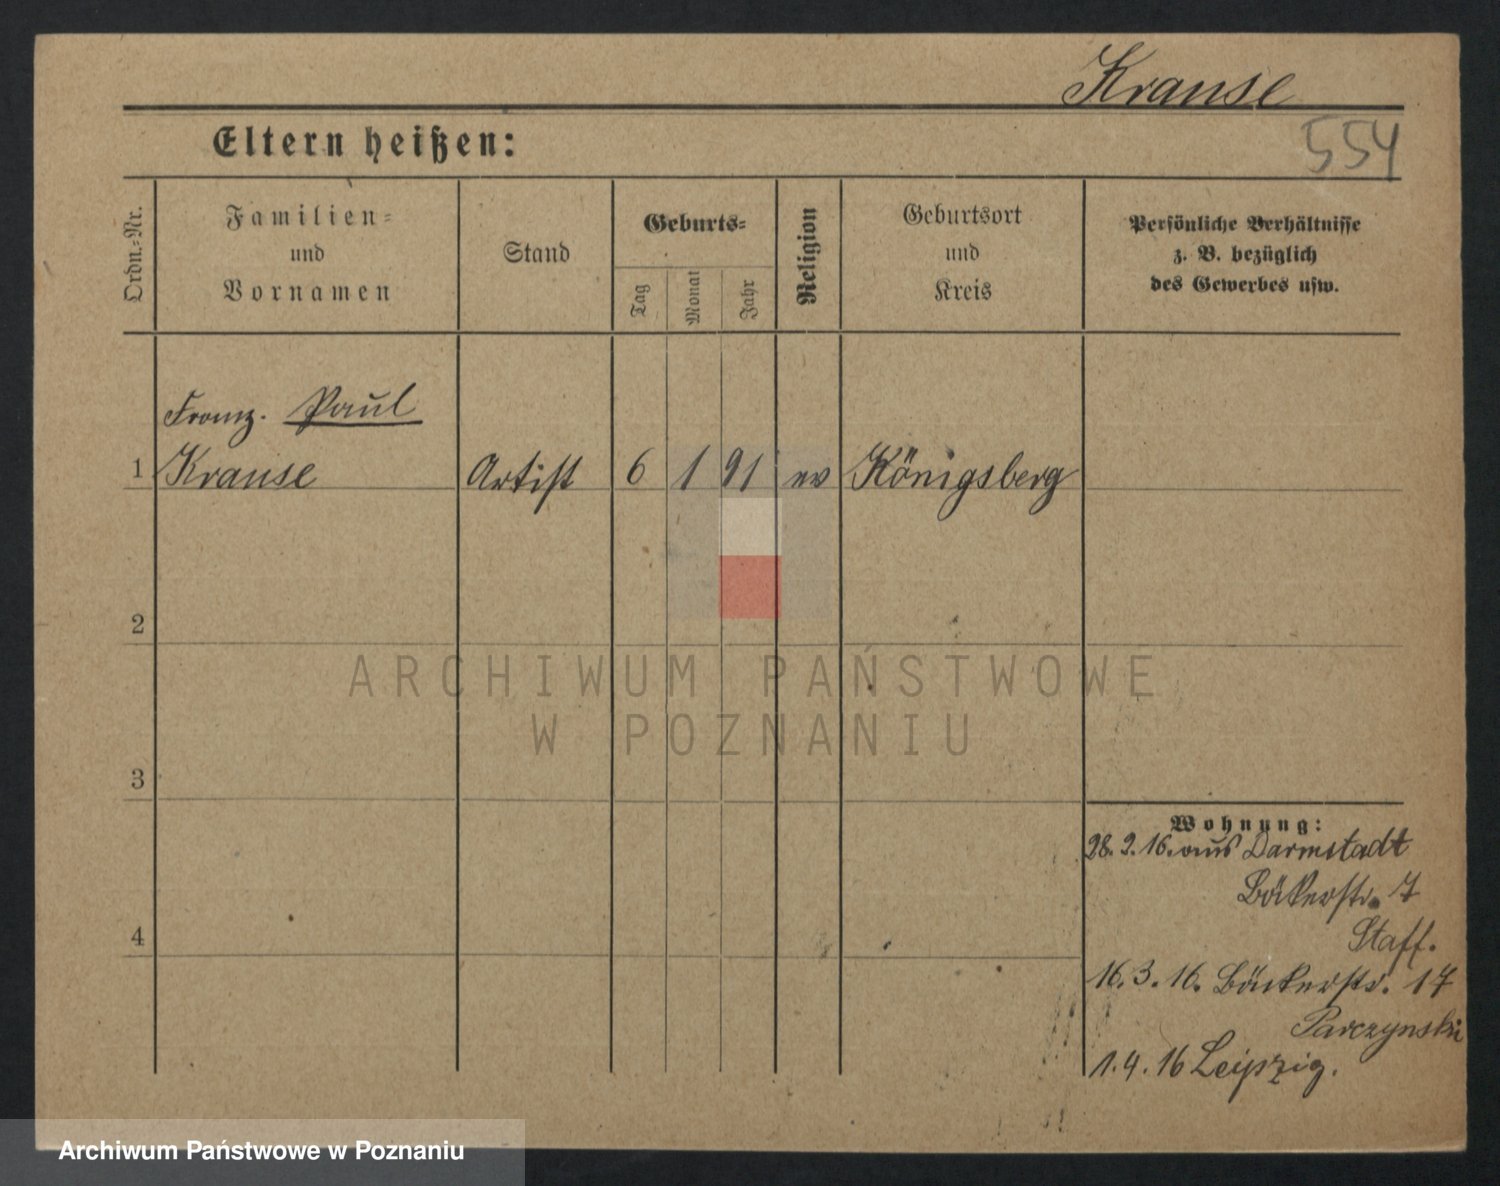 Krause
Eltern heißen:
554
Ordn.-Nr.
Familien-
und
Vornamen
Stand
Geburts-
Tag
Monat
Jahr
Religion
Geburtsort
und
Kreis
Persönliche Verhältnisse
z. B. bezüglich
des Gewerbes usw.
Franz. Paul
1 Krause Artist 6 1 91 ev Königsberg
2
ARCHIWUM PAŃSTWOWE
W POZNANIU
3
Wohnung:
28. 2. 16. aus Darmstadt
Bäckerstr. 7
Staff.
4
16. 3. 16. Bäckerstr. 17
Parczynski
1. 4. 16 Leipzig.
Archiwum Państwowe w Poznaniu